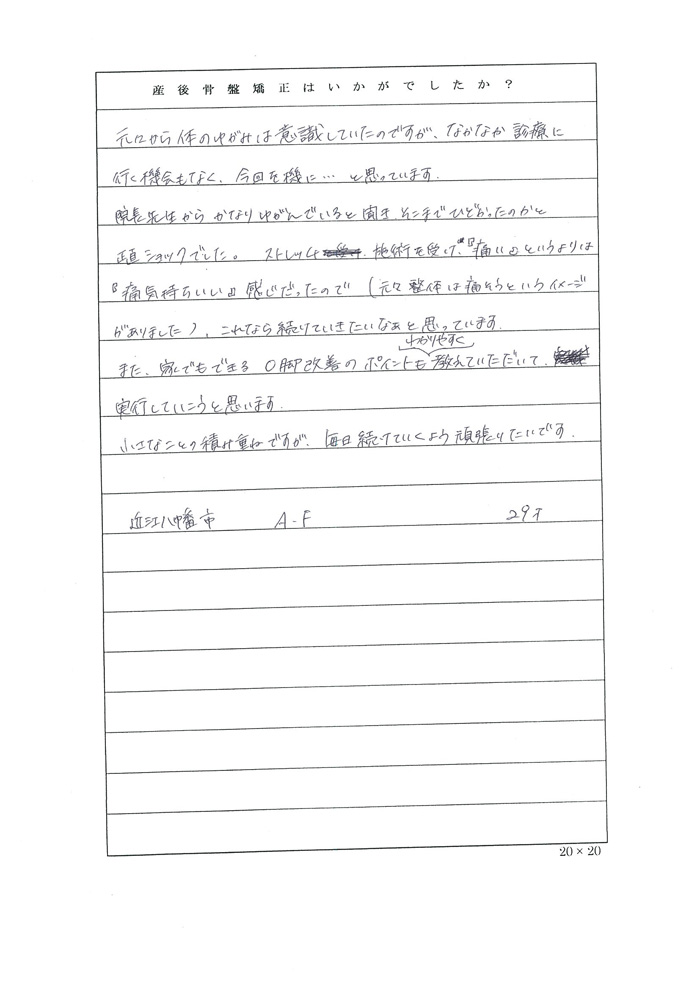 産後骨盤矯正はいかがでしたか？
元々から体のゆがみは意識していたのですが、なかなか診療に
行く機会もなく、今回を機に…と思っています。
院長先生からかなりゆがんでいると聞き、そこまでひどかったのかと
正直ショックでした。ストレッチ、施術を受け、『痛い』というよりは
『痛気持ちいい』感じだったので（元々整体は痛そうというイメージ
がありました）、これなら続けていきたいなぁと思っています。
わかりやすく
また、家でもできるO脚改善のポイントも教えていただいて、
実行していこうと思います。
小さなことの積み重ねですが、毎日続けていくよう頑張りたいです。
近江八幡市 A-F 29才
20×20